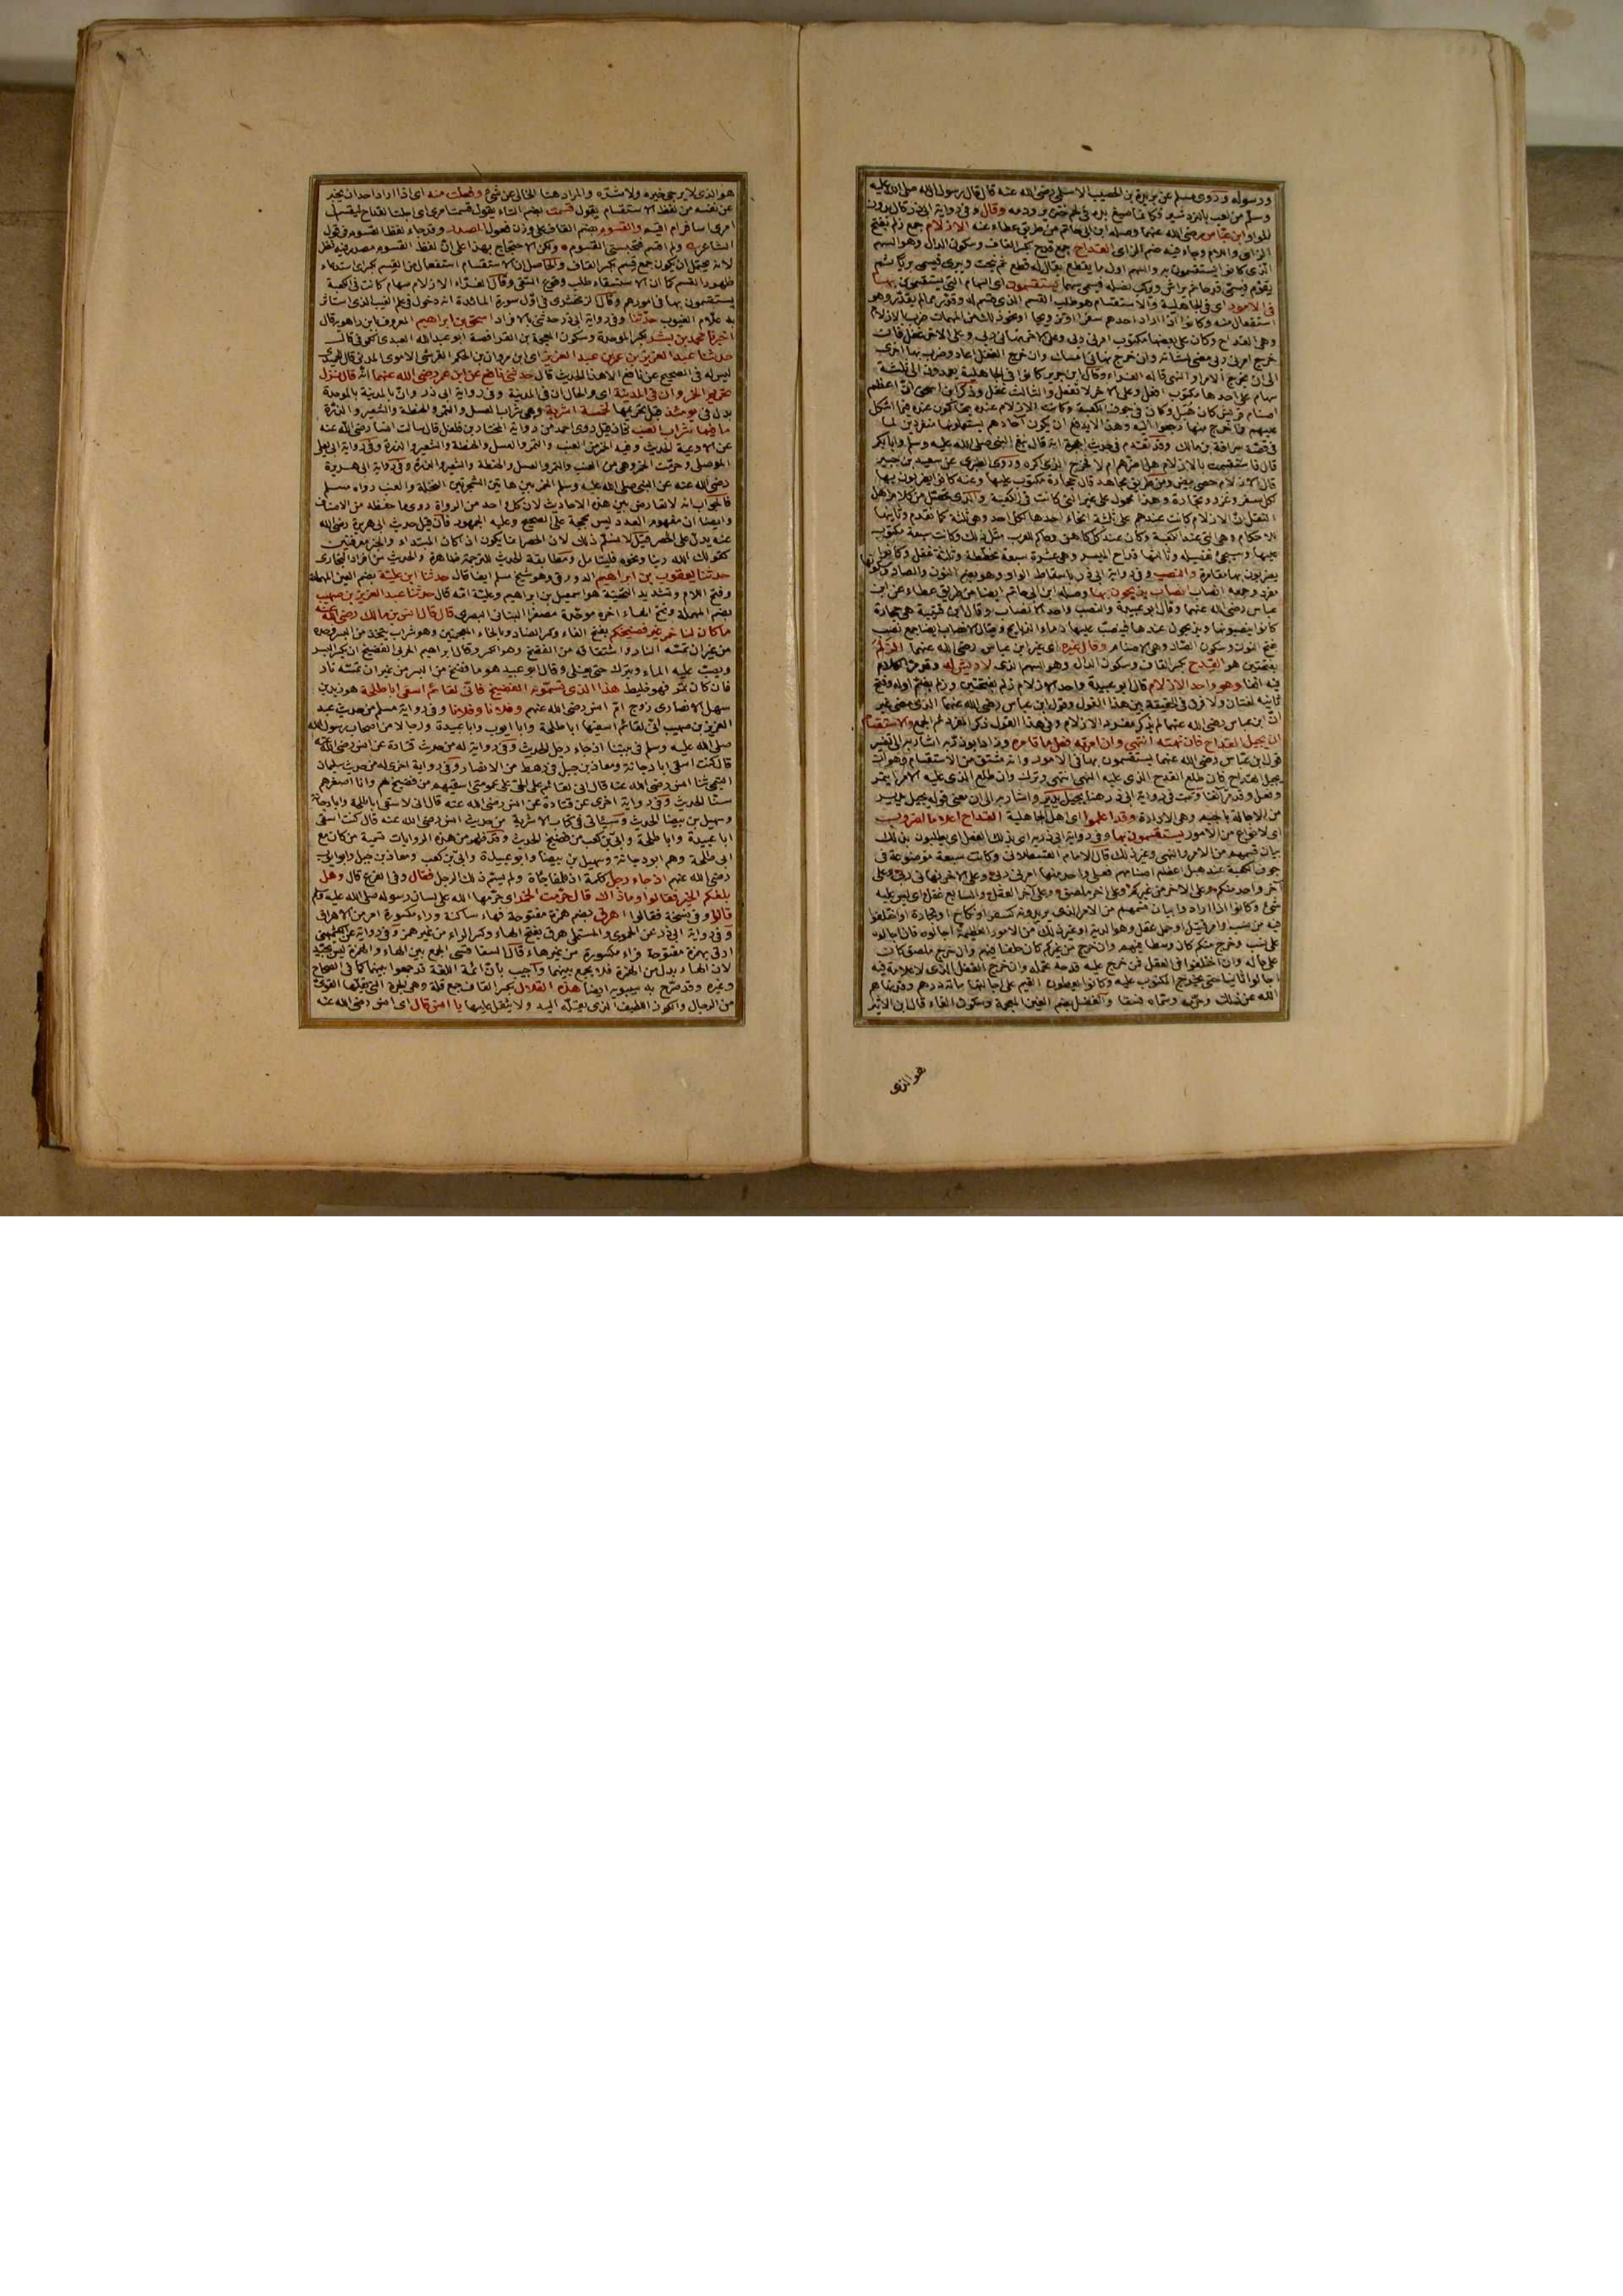 ورسوله وروى مسلم عن بريدة بن الحصيب الاسلمي رضي الله عنه قال قال رسول الله صلى الله عليه
وسلم من لعب بالنردشير فكأنما صبغ يده في لحم خنزير ودمه وقال وفي رواية ابي ذر قال بدون
الواو ابن عباس رضي الله عنهما وصله ابن ابي حاتم من طريق عطاء عنه الازلام جمع زلم بفتح
الزاي واللام وجاء فيه ضم الزاي القداح جمع قدح بكسر القاف وسكون الدال وهو السهم
الذي كانوا يستقسمون به والسهم اول ما يقطع يقال له قطع ثم ينحت ويبرى فيسمى بريا ثم
يقوم فيسمى قدحا ثم يراش ويركب نصله فيسمى سهما يستقسمون اي السهام التي يستقسمون بها
في الامور اي في الجاهلية والاستقسام هو طلب القسم الذي قسم له وقدر مما لم يقدر وهو
استفعال منه وكانوا اذا اراد احدهم سفرا او تزويجا او نحو ذلك من المهمات ضرب بالازلام
وهي القداح وكان على بعضها مكتوب امرني ربي وعلى الاخر نهاني ربي وعلى الاخر غفل فان
خرج امرني ربي مضى لشأنه وان خرج نهاني امسك وان خرج الغفل اعاد وضرب بها اخرى
الى ان يخرج الامر او النهي قاله الفراء وقال ابن جرير كانوا في الجاهلية يعمدون الى ثلثة
سهام على احدها مكتوب افعل وعلى الاخر لا تفعل والثالث غفل وذكر ابن اسحق ان اعظم
اصنام قريش كان هبل وكان في جوف الكعبة وكانت الازلام عنده يتحاكمون عنده فيما اشكل
عليهم فما خرج منها رجعوا اليه وهذا لا يدفع ان يكون آحادهم يستعملونها منفردين كما
في قصة سراقة بن مالك وقد تقدم في حديث الهجرة انه قال تبع النبي صلى الله عليه وسلم وابا بكر
قال فاستقسمت بالازلام هل اضرهم ام لا فخرج الذي اكره وروى الطبري عن سعيد بن جبير
قال الازلام حصى بيض ومن طريق مجاهد قال حجارة مكتوب عليها وعنه كانوا يضربون بها
لكل سفر وغزو وتجارة وهذا محمول على غير التي كانت في الكعبة والذي تحصل من كلام اهل
النقل ان الازلام كانت عندهم على ثلثة انحاء احدها لكل احد وهي ثلثة كما تقدم وثانيها
للاحكام وهي التي عند الكعبة وكان عند كل كاهن وحاكم للعرب مثل ذلك وكانت سبعة مكتوب
عليها وسيجيء تفصيله وثالثها قداح الميسر وهي عشرة سبعة مخططة وثلثة غفل وكانوا
يضربون بها مقامرة والنصب وفي رواية ابي ذر باسقاط الواو وهو بضم النون والصاد
مفرد وجمعه انصاب انصاب يذبحون بها وصله ابن ابي حاتم ايضا من طريق عطاء عن ابن
عباس رضي الله عنهما وقال ابو عبيدة والنصب واحد الانصاب وقال ابن قتيبة هي حجارة
كانوا ينصبونها ويذبحون عندها فينصب عليها دماء الذبايح ويقال الانصاب ايضا جمع نصب
بفتح النون وسكون الصاد وهي الاصنام وقال غيره اي غير ابن عباس رضي الله عنهما الزلم
بفتحتين هو القدح بكسر القاف وسكون الدال وهو السهم الذي لا ريش له وقد مر الكلام
فيه آنفا وهو واحد الازلام قال ابو عبيدة واحد الازلام زلم بفتحتين وزلم بضم اوله وفتح
ثانيه لغتان ولا فرق في الحقيقة بين هذا القول وقول ابن عباس رضي الله عنهما الذي مضى غير
ان ابن عباس رضي الله عنهما لم يذكر مفرد الازلام وفي هذا القول ذكر المفرد ثم الجمع والاستقسام
ان يجيل القداح فان نهته انتهى وان امرته فعل ما تأمره وزاد ابو ذر به اشار به الى تفسير
قول ابن عباس رضي الله عنهما يستقسمون بها في الامور وانه مشتق من الاستقسام وهو ان
يجيل القداح فان طلع القدح الذي عليه النهي انتهى وترك وان طلع الذي عليه الامر ائتمر
وفعل وقد مر آنفا وثبت في رواية ابي ذر هنا يجيل يدير واشار به الى ان معنى قوله يجيل يدير
من الاجالة بالجيم وهي الادارة وقد اعلموا اي اهل الجاهلية القداح اعلاما لضروب
اي لانواع من الامور يستقسمون بها وفي رواية ابي ذر به اي بذلك الفعل اي يطلبون بذلك
بيان قسمهم من الامر والنهي وغير ذلك قال الامام القسطلاني وكانت سبعة موضوعة في
جوف الكعبة عند هبل اعظم اصنامهم فعلى واحد منها امرني ربي وعلى الاخر نهاني ربي وعلى
آخر واحد منكم وعلى الاخر من غيركم وعلى اخر ملصق وعلى آخر العقل والسابع غفل اي ليس عليه
شيء وكانوا اذا ارادوا بيان قسمهم من الامر الذي يريدونه كسفر او نكاح او تجارة او اختلفوا
فيه من نسب او امر قتيل او حمل عقل وهو الدية او غير ذلك من الامور العظيمة اجالوه فان اجالوه
على نسب وخرج منكم كان وسطا فيهم وان خرج من غيركم كان حلفا فيهم وان خرج ملصق كان
على حاله وان اختلفوا في العقل فمن خرج عليه قدحه تحمله وان خرج الغفل الذي لا علامة فيه
اجالوا ثانيا حتى يخرج المكتوب عليه وكانوا يعطون القيم على اجالتها مائة درهم وقد نهاهم
الله عن ذلك وحرمه وسماه فسقا والغفل بضم الغين المعجمة وسكون الفاء قال ابن الاثير
هو الذي
هو الذي لا يرجى خيره ولا شره والمراد هنا الخالي عن شيء وفعلت منه اي اذا اراد احد ان يخبر
عن نفسه من لفظ الاستقسام يقول قسمت بضم التاء يقول قسمت امري اي اجلت القداح ليقسم لي
امري اسافر ام اقيم والقسوم بضم القاف على وزن فعول المصدر وقد جاء لفظ القسوم في قول
الشاعر ولم اقسم فتحبسني القسوم ولكن الاحتجاج بهذا على ان لفظ القسوم مصدر فيه نظر
لانه يحتمل ان يكون جمع قسم بكسر القاف والحاصل ان الاستقسام استفعال من القسم بكسر اي استدعاء
ظهور القسم كما ان الاستسقاء طلب وقوع السقي وقال الفراء الازلام سهام كانت في الكعبة
يستقسمون بها في امورهم وقال الزمخشري في اول سورة المائدة انه دخول في علم الغيب الذي استأثر
به علام الغيوب حدثنا وفي رواية ابي ذر حدثني بالافراد اسحق بن ابراهيم المعروف بابن راهويه قال
اخبرنا محمد بن بشر بكسر الموحدة وسكون المعجمة بن الفرافصة ابو عبد الله العبدي الكوفي قال
حدثنا عبد العزيز بن عمر بن عبد العزيز اي ابن مروان بن الحكم القرشي الاموي المدني قال
ليس له في الصحيح عن نافع الا هذا الحديث قال حدثني نافع عن ابن عمر رضي الله عنهما انه قال نزل
تحريم الخمر وان في المدينة اي والحال ان في المدينة وفي رواية ابي ذر وان بالمدينة بالموحدة
بدل في يومئذ قبل تحريمها لخمسة اشربة وهي شراب العسل والتمر والحنطة والشعير والذرة
ما فيها شراب العنب فان قيل روى احمد من رواية المختار بن فلفل قال سألت انسا رضي الله عنه
عن الاوعية الحديث وفيه الخمر من العنب والتمر والعسل والحنطة والشعير والذرة وفي رواية ابي يعلى
الموصلي وحرمت الخمر وهي من العنب والتمر والعسل والحنطة والشعير والذرة وفي رواية ابي هريرة
رضي الله عنه عن النبي صلى الله عليه وسلم الخمر من هاتين الشجرتين النخلة والعنب رواه مسلم
فالجواب انه لا تعارض بين هذه الاحاديث لان كل واحد من الرواة روى ما حفظه من الاصناف
وايضا ان مفهوم العدد ليس بحجة على الصحيح وعليه الجمهور فان قيل حديث ابي هريرة رضي الله
عنه يدل على الحصر قيل لا نسلم ذلك لان الحصر انما يكون اذ كان المبتداء والخبر معرفتين
كقولك الله ربنا ونحوه فليتأمل ومطابقة الحديث للترجمة ظاهرة والحديث من افراد البخاري
حدثنا يعقوب بن ابراهيم الدورقي وهو شيخ مسلم ايضا قال حدثنا ابن علية بضم العين المهملة
وفتح اللام وتشديد التحتية هو اسمعيل بن ابراهيم وعلية امه قال حدثنا عبد العزيز بن صهيب
بضم المهملة وفتح الهاء اخره موحدة مصغرا البناني البصري قال قال انس بن مالك رضي الله عنه
ما كان لنا خمر غير فضيخكم بفتح الفاء وكسر الضاد وبالخاء المعجمتين وهو شراب يتخذ من البسر وحده
من غير ان تمسه النار واشتقاقه من الفضخ وهو الكسر وقال ابراهيم الحربي الفضيخ ان يكسر البسر
ويصب عليه الماء ويترك حتى يغلي وقال ابو عبيد هو ما فضخ من البسر من غير ان تمسه نار
فان كان تمر فهو خليط هذا الذي تسمونه الفضيخ فاني لقائم اسقي ابا طلحة هو زيد بن
سهل الانصاري زوج ام انس رضي الله عنهم وفلانا وفلانا وفي رواية مسلم من حديث عبد
العزيز بن صهيب اني لقائم اسقيها ابا طلحة وابا ايوب وابا عبيدة ورجالا من اصحاب رسول الله
صلى الله عليه وسلم في بيتنا اذ جاء رجل الحديث وفي رواية له من حديث قتادة عن انس رضي الله عنه
قال كنت اسقي ابا دجانة ومعاذ بن جبل في رهط من الانصار وفي رواية اخرى له من حديث سليمان
التيمي ثنا انس رضي الله عنه قال اني لقائم على الحي على عمومتي اسقيهم من فضيخ لهم وانا اصغرهم
سنا الحديث وفي رواية اخرى عن قتادة عن انس رضي الله عنه قال اني لاسقي ابا طلحة وابا دجانة
وسهيل بن بيضا الحديث وسيأتي في كتاب الاشربة من حديث انس رضي الله عنه قال كنت اسقي
ابا عبيدة وابا طلحة وابي بن كعب من فضيخ الحديث وقد ظهر من هذه الروايات تسمية من كان مع
ابي طلحة وهم ابو دجانة وسهيل بن بيضا وابو عبيدة وابي بن كعب ومعاذ بن جبل وابو ايوب
رضي الله عنهم اذ جاء رجل كلمة اذ للمفاجأة ولم يسم ذلك الرجل فقال وفي الفرع قال وهل
بلغكم الخبر فقالوا وما ذاك قال حرمت الخمر اي حرمها الله على لسان رسوله صلى الله عليه وسلم
قالوا وفي نسخة فقالوا اهرق بضم همزة مفتوحة فهاء ساكنة وراء مكسورة امر من الاهراق
وفي رواية ابي ذر عن الحموي والمستملي هرق بفتح الهاء وكسر الراء من غير همز وفي رواية عن الكشميهني
ارق بهمزة مفتوحة فراء مكسورة من غير هاء قال السفاقسي الجمع بين الهاء والهمزة ليس بجيد
لان الهاء بدل من الهمزة فلا يجمع بينهما واجيب بان ائمة اللغة قد جمعوا بينهما كما في الصحاح
وغيره وقد صرح به سيبويه ايضا هذه القلال بكسر القاف جمع قلة وهي الجرة التي يقلها القوي
من الرجال والكوز اللطيف الذي تقله اليد ولا يثقل عليها يا انس قال اي انس رضي الله عنه